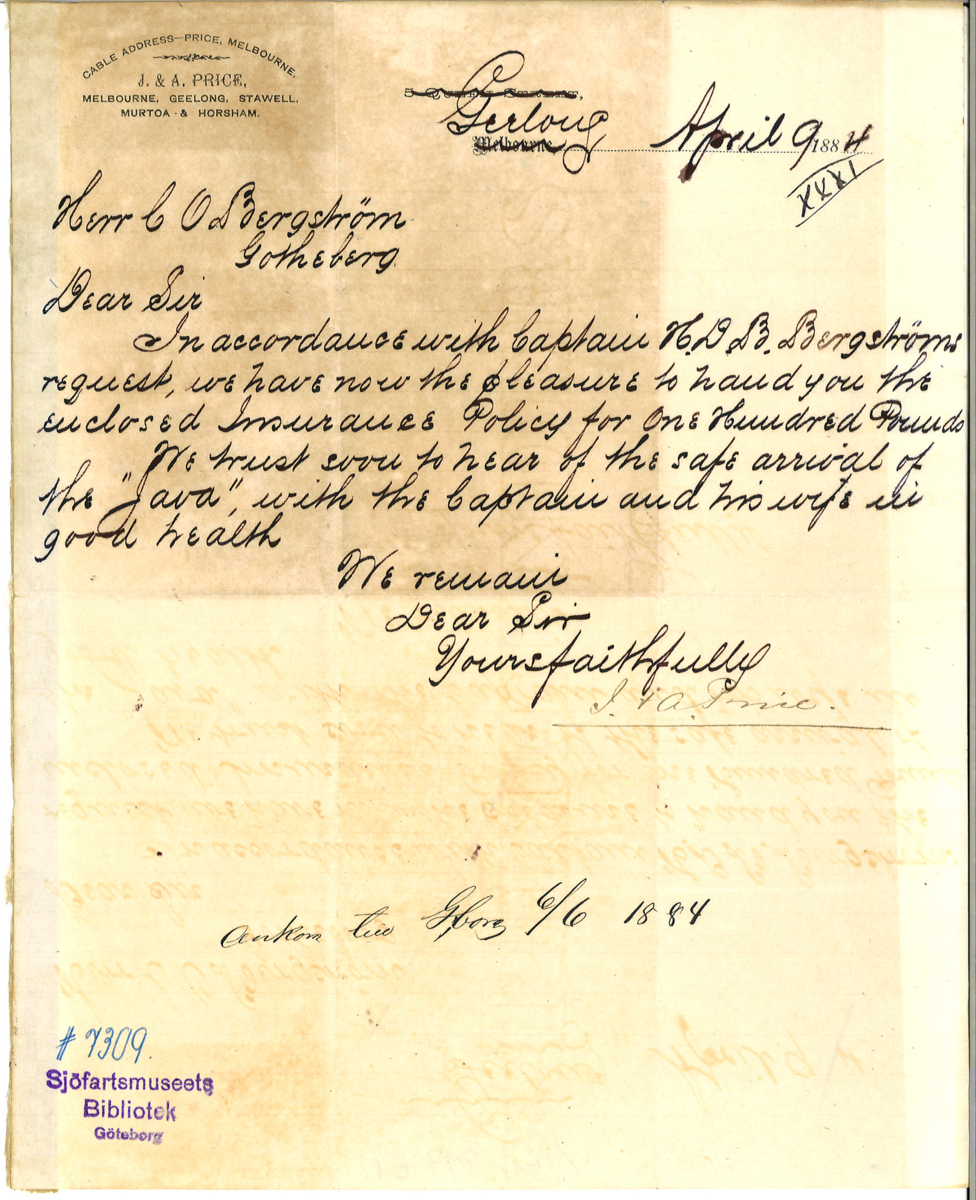 CABLE ADDRESS—PRICE, MELBOURNE.
J. & A. PRICE,
MELBOURNE, GEELONG, STAWELL,
MURTOA & HORSHAM.
5 Queen Street,
Geelong
Melbourne,
April 9 1884
XXXI
Herr C O Bergström
Gotheberg
Dear Sir
In accordance with Captain H.D.B. Bergströms
request, we have now the pleasure to hand you the
enclosed Insurance Policy for One Hundred Pounds
We trust soon to hear of the safe arrival of
the "Java", with the Captain and his wife in
good health
We remain
Dear Sir
Yours faithfully
J. & A. Price.
ankom till Gborg 6/6 1884
# 7309.
Sjöfartsmuseets
Bibliotek
Göteborg